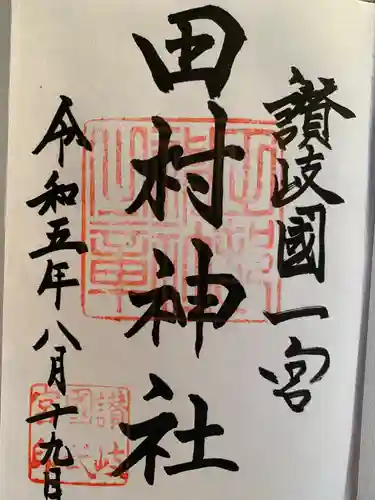 讃岐國一宮
田村神社
令和五年八月十九日